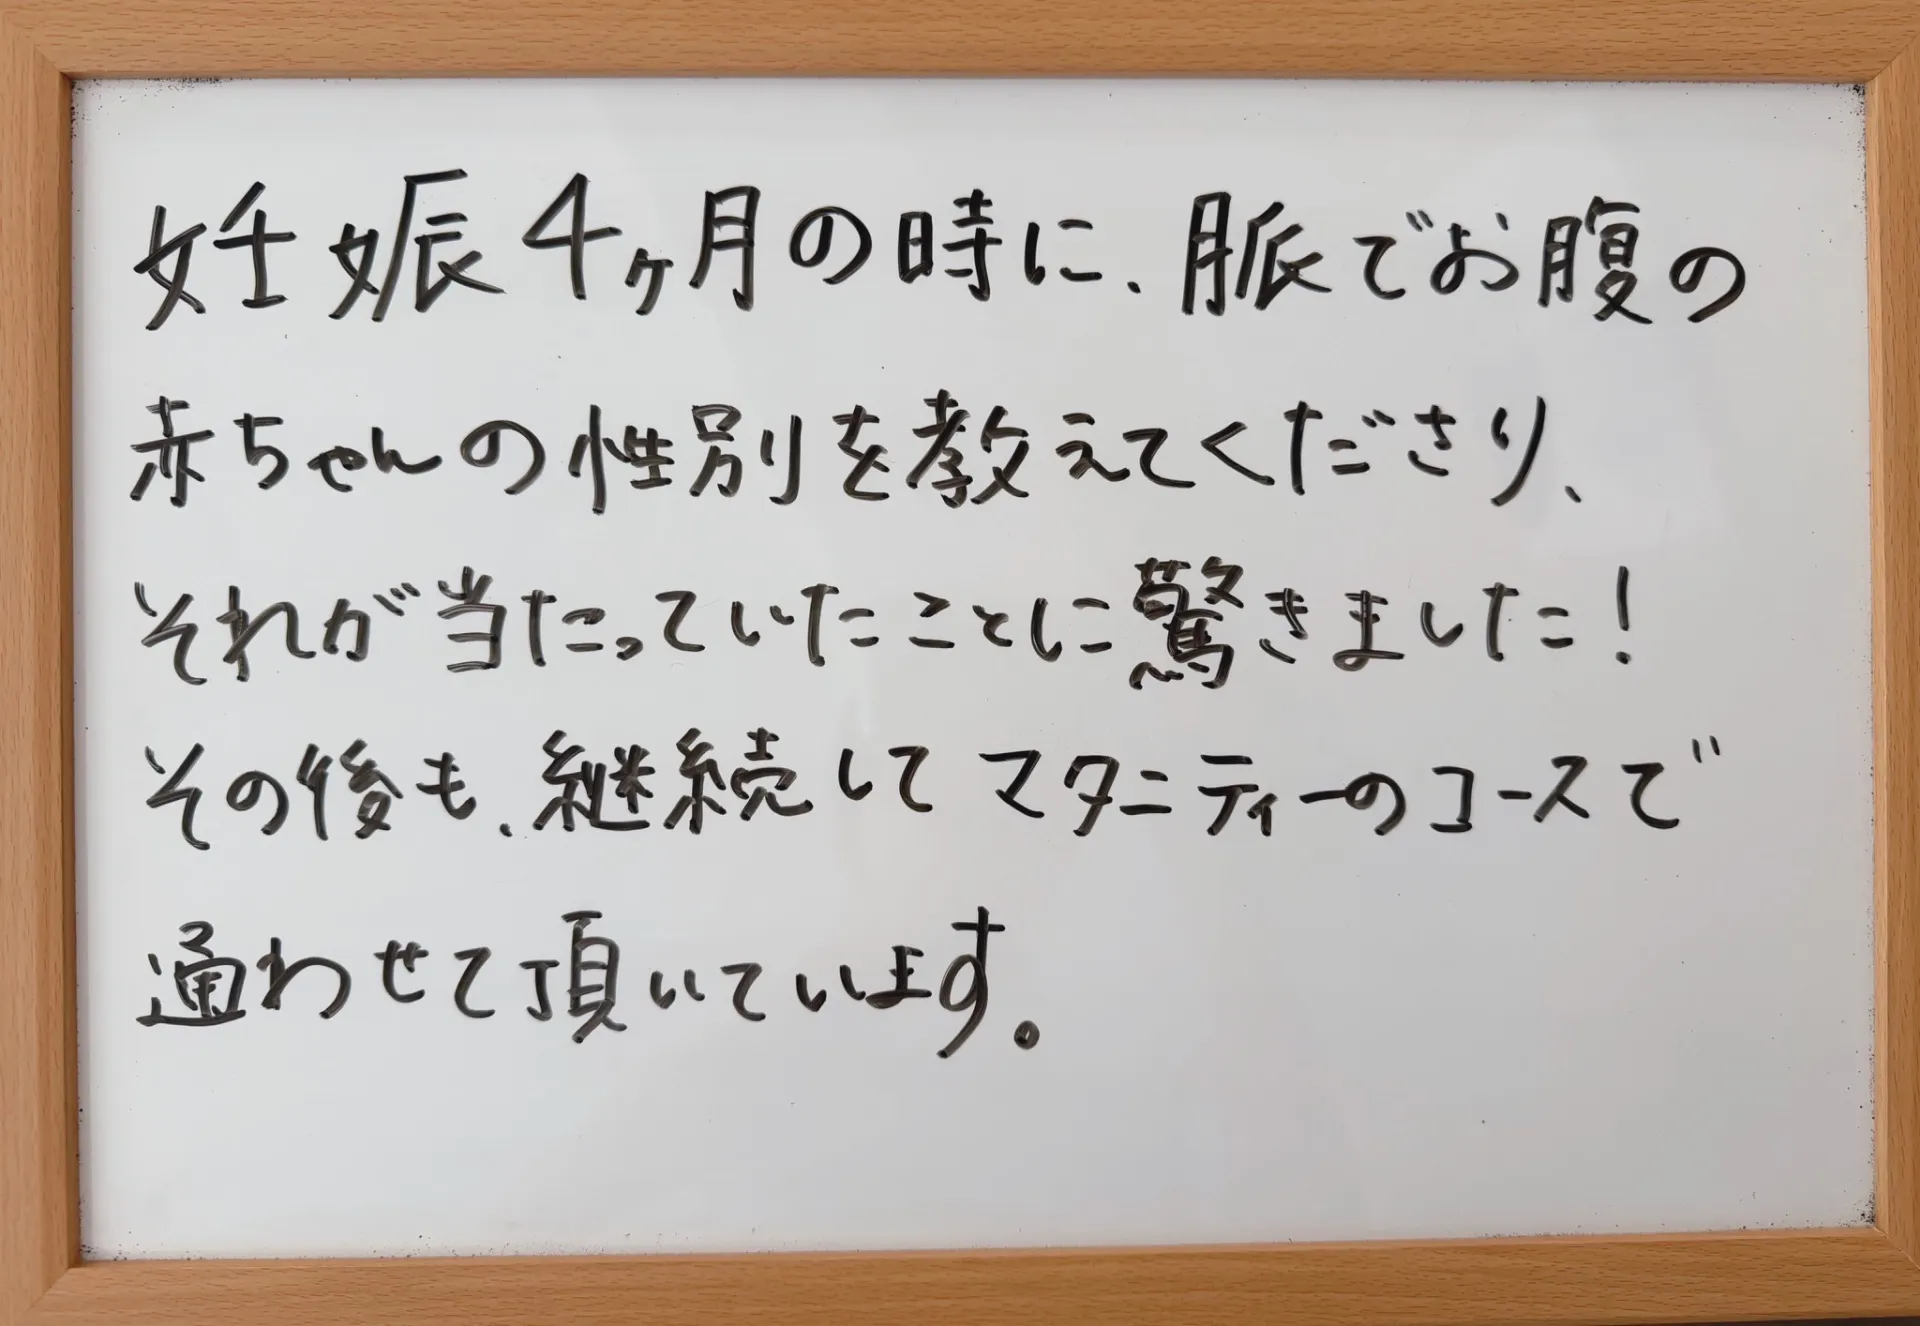 妊娠4ヶ月の時に、脈でお腹の
赤ちゃんの性別を教えてくださり、
それが当たっていたことに驚きました！
その後も、継続してマタニティーのコースで
通わせて頂いています。